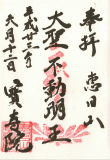 奉拝 恵日山
大聖不動明王
平成廿三年
六月十二日
寳島院